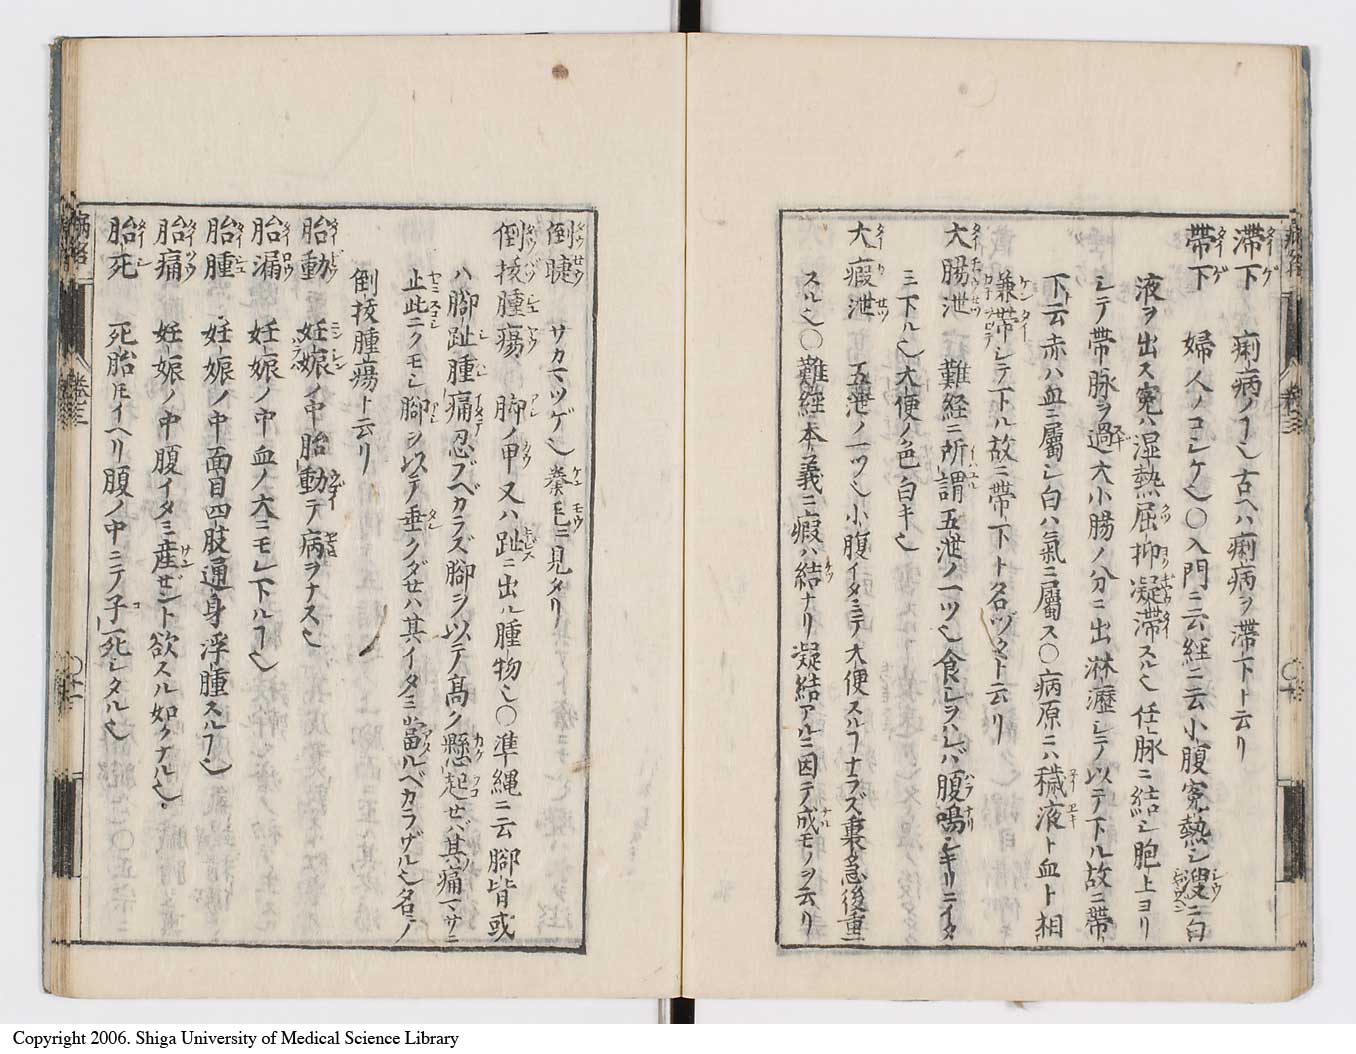 滞下 痢病ノ ヿ也古ヘハ痢病ヲ滞下ト云リ
帯下 婦人ノコシケ也〇入門ニ云経ニ云小腹寃熱シ溲ニ白
液ヲ出ス寃ハ湿熱屈抑凝滞スル也任脉ニ結シ胞上ヨリ
シテ帯脉ヲ過大小腸ノ分ニ出淋瀝シテ以テ下ル故ニ帯
下ト云赤ハ血ニ屬シ白ハ氣ニ屬ス〇病原ニハ穢液ト血ト相
兼帯シテ下ル故ニ帯下ト名ヅクト云リ
大腸泄 難経ニ所謂五泄ノ一ツ也食シヲハレバ腹鳴シキリニイタ
ミ下ル也大便ノ色白キ也
大瘕泄 五泄ノ一ツ也小腹イタミテ大便スルヿナラズ裏急後重
スル也〇難経本義ニ瘕ハ結ナリ凝結アルニ因テ成モノヲ云リ
倒睫 サカマツゲ也拳毛ニ見タリ
倒 腫瘍 脚ノ甲又ハ趾ニ出ル腫物也〇準縄ニ云脚背或
ハ脚趾腫痛忍ブベカラズ脚ヲ以テ高ク懸起セバ其痛マサニ
止此ニクモシ脚ヲ以テ垂クダセハ其イタミ當ルベカラザル也名テ
倒 腫瘍ト云リ
胎動 妊娠ノ中胎動テ病ヲナス也
胎漏 妊娠ノ中血ノ大ニモレ下ルヿ也
胎腫 妊娠ノ中面目四肢通身浮腫スルヿ也
胎痛 妊娠ノ中腹イタミ産ゼント欲スル如クナル也
胎死 死胎 イヘリ腹ノ中ニテノ子死シタル也
病名 巻三
Copyright 2006. Shiga University of Medical Science Library